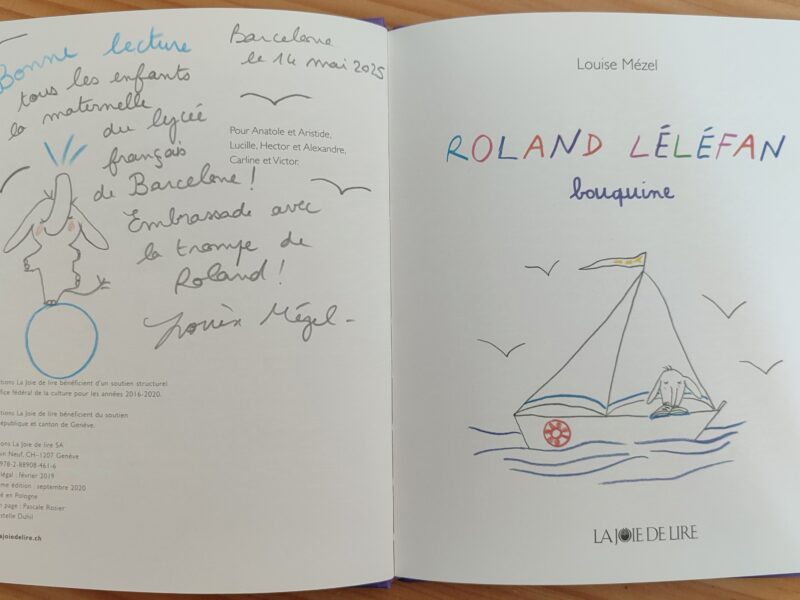 Bonne lecture
Barcelone
le 14 mai 2025
tous les enfants
la maternelle
du lycée
français
de Barcelone !
Embrassade avec
la trompe de
Roland !
Louise Mézel -
Pour Anatole et Aristide,
Lucille, Hector et Alexandre,
Carline et Victor.
tions La Joie de lire bénéficient d'un soutien structurel
fice fédéral de la culture pour les années 2016-2020.
tions La Joie de lire bénéficient du soutien
épublique et canton de Genève.
ions La Joie de lire SA
in Neuf, CH-1207 Genève
978-2-88908-461-6
légal : février 2019
me édition : septembre 2020
é en Pologne
n page : Pascale Rosier
ajoiedelire.ch
Louise Mézel
ROLAND LÉLÉFAN
bouquine
LA JOIE DE LIRE